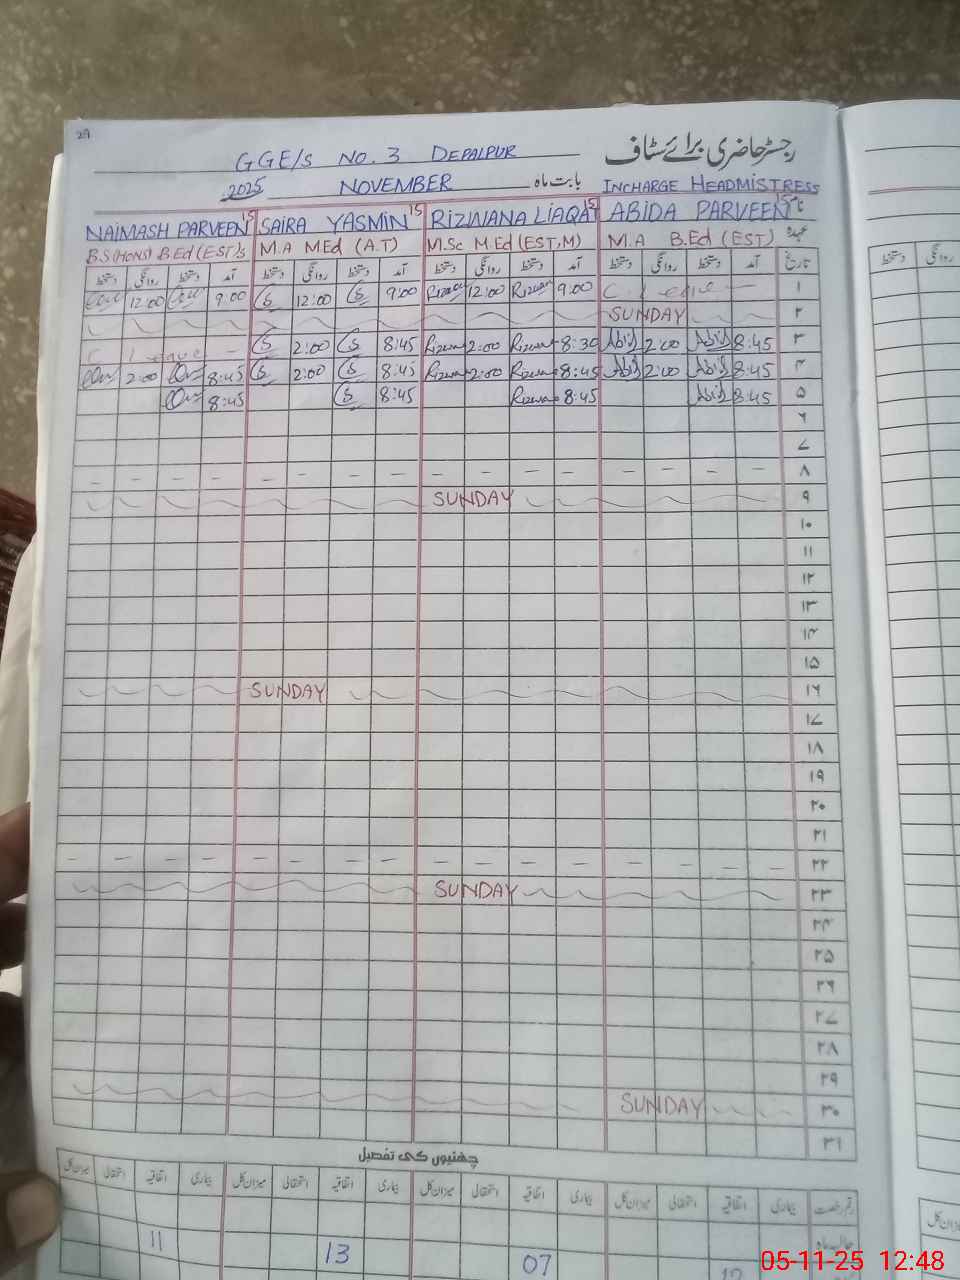 29
رجسٹر حاضری برائے سٹاف
GGE/S NO. 3 DEPALPUR
2025 NOVEMBER بابت ماہ INCHARGE HEADMISTRESS
NAIMASH PARVEEN 15 SAIRA YASMIN 15 RIZWANA LIAQAT 15 ABIDA PARVEEN 15 نام
B.S(HONS) B.Ed(EST)S M.A MEd (A.T) M.Sc M.Ed (EST,M) M.A B.Ed (EST) عہدہ
تاریخ آمد دستخط روانگی دستخط آمد دستخط روانگی دستخط آمد دستخط روانگی دستخط آمد دستخط روانگی دستخط
12:00 9:00 12:00 9:00 Rizwan 12:00 Rizwan 9:00 C. leave ۱
SUNDAY ۲
C leave 2:00 8:45 Rizwan 2:00 Rizwan 8:30 Abid 2:00 Abid 8:45 ۳
2:00 8:45 2:00 8:45 Rizwan 2:00 Rizwan 8:45 Abid 2:00 Abid 8:45 ۴
8:45 8:45 Rizwan 8:45 Abid 8:45 ۵
۶
۷
۸
SUNDAY ۹
۱۰
۱۱
۱۲
۱۳
۱۴
۱۵
SUNDAY ۱۶
۱۷
۱۸
۱۹
۲۰
۲۱
۲۲
SUNDAY ۲۳
۲۴
۲۵
۲۶
۲۷
۲۸
۲۹
SUNDAY ۳۰
۳۱
چھٹیوں کی تفصیل
رقم رخصت بیماری اتفاقیہ استحقاقی میزان کل بیماری اتفاقیہ استحقاقی میزان کل بیماری اتفاقیہ استحقاقی میزان کل بیماری اتفاقیہ استحقاقی میزان کل
11 13 07
دستخط روانگی
میزان کل
05-11-25 12:48